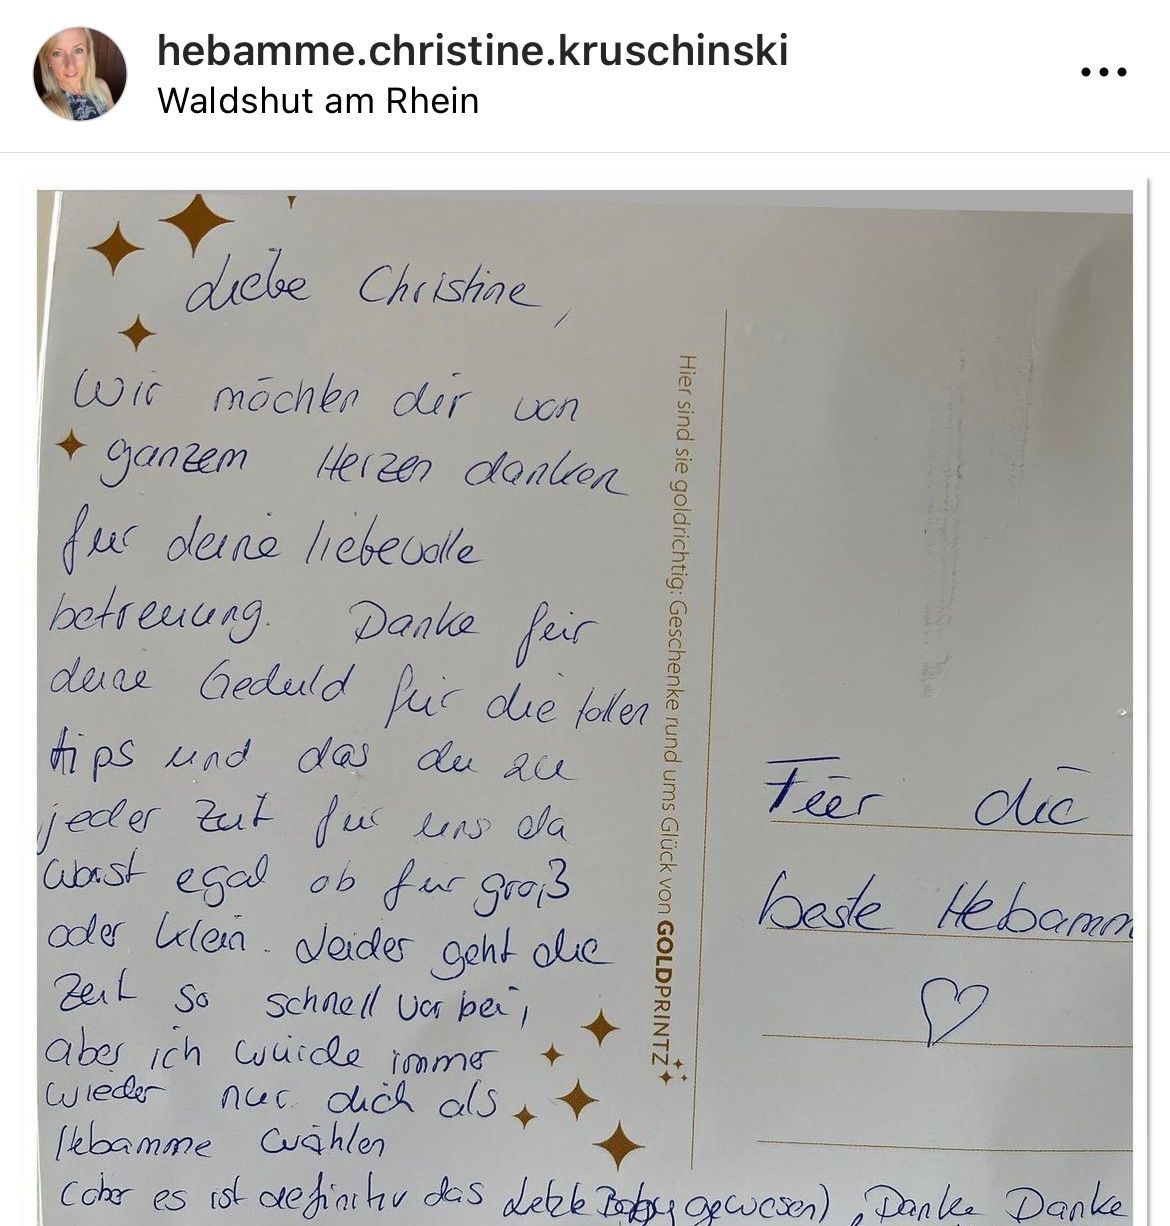 hebamme.christine.kruschinski
Waldshut am Rhein
Liebe Christine,
Wir möchten dir von
ganzem Herzen danken
für deine liebevolle
betreuung. Danke für
deine Geduld für die tollen
tips und das du zu
jeder Zeit für uns da
warst egal ob für groß
oder klein. Leider geht die
Zeit so schnell vorbei,
aber ich würde immer
wieder nur dich als
Hebamme wählen
(aber es ist definitiv das letzte Baby gewesen), Danke Danke
Hier sind sie goldrichtig: Geschenke rund ums Glück von GOLDPRINTZ
Für die
beste Hebamm